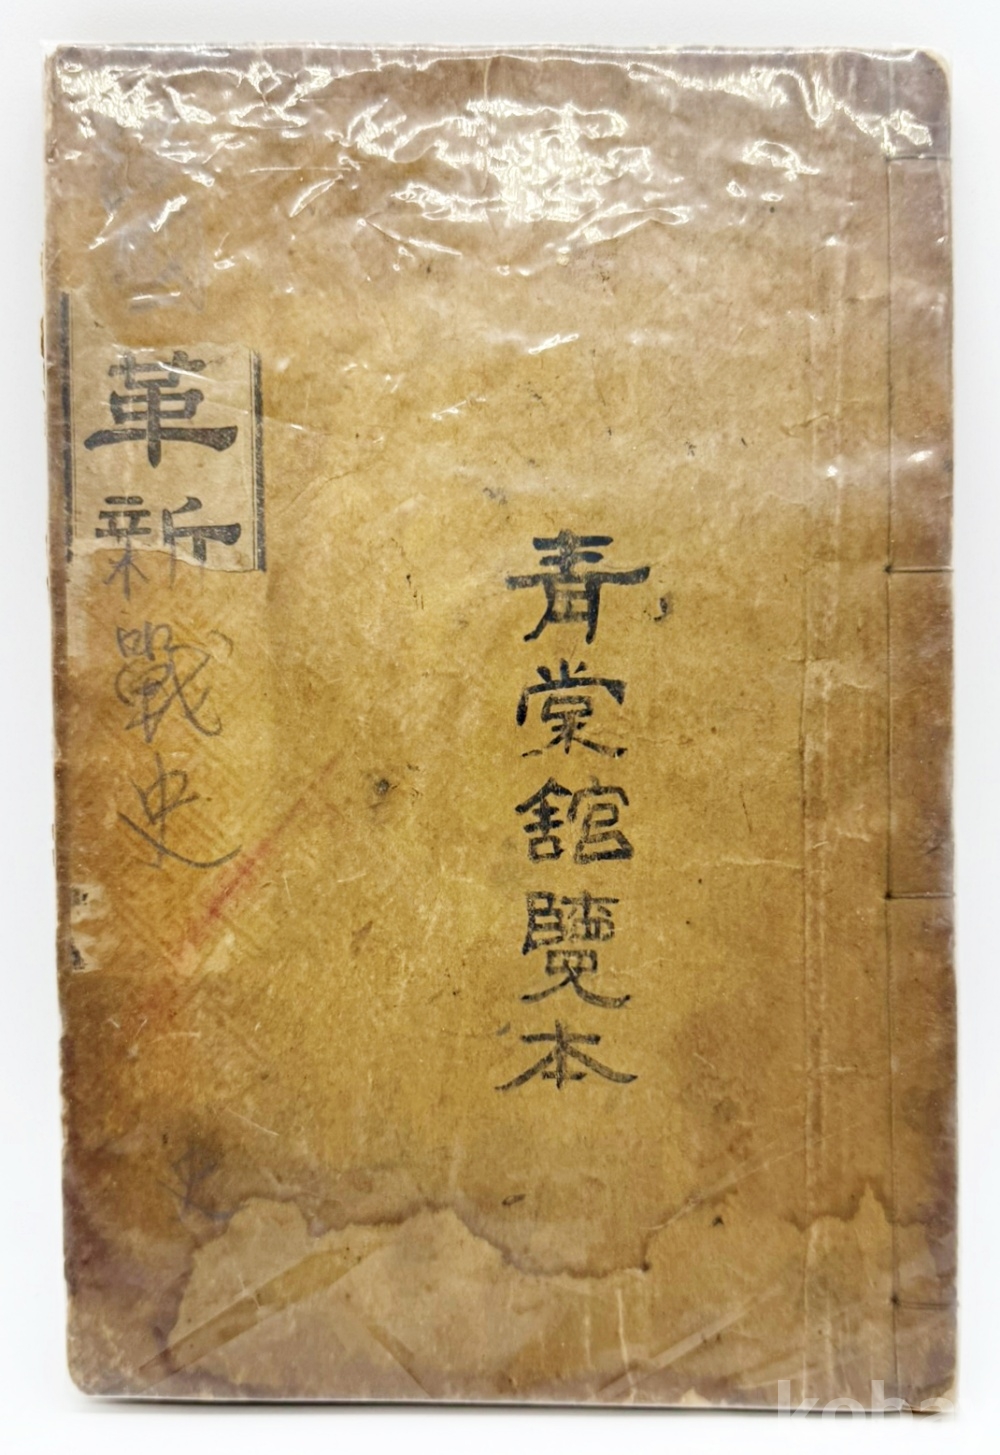 靑棠舘覽本
革新戰史
koba